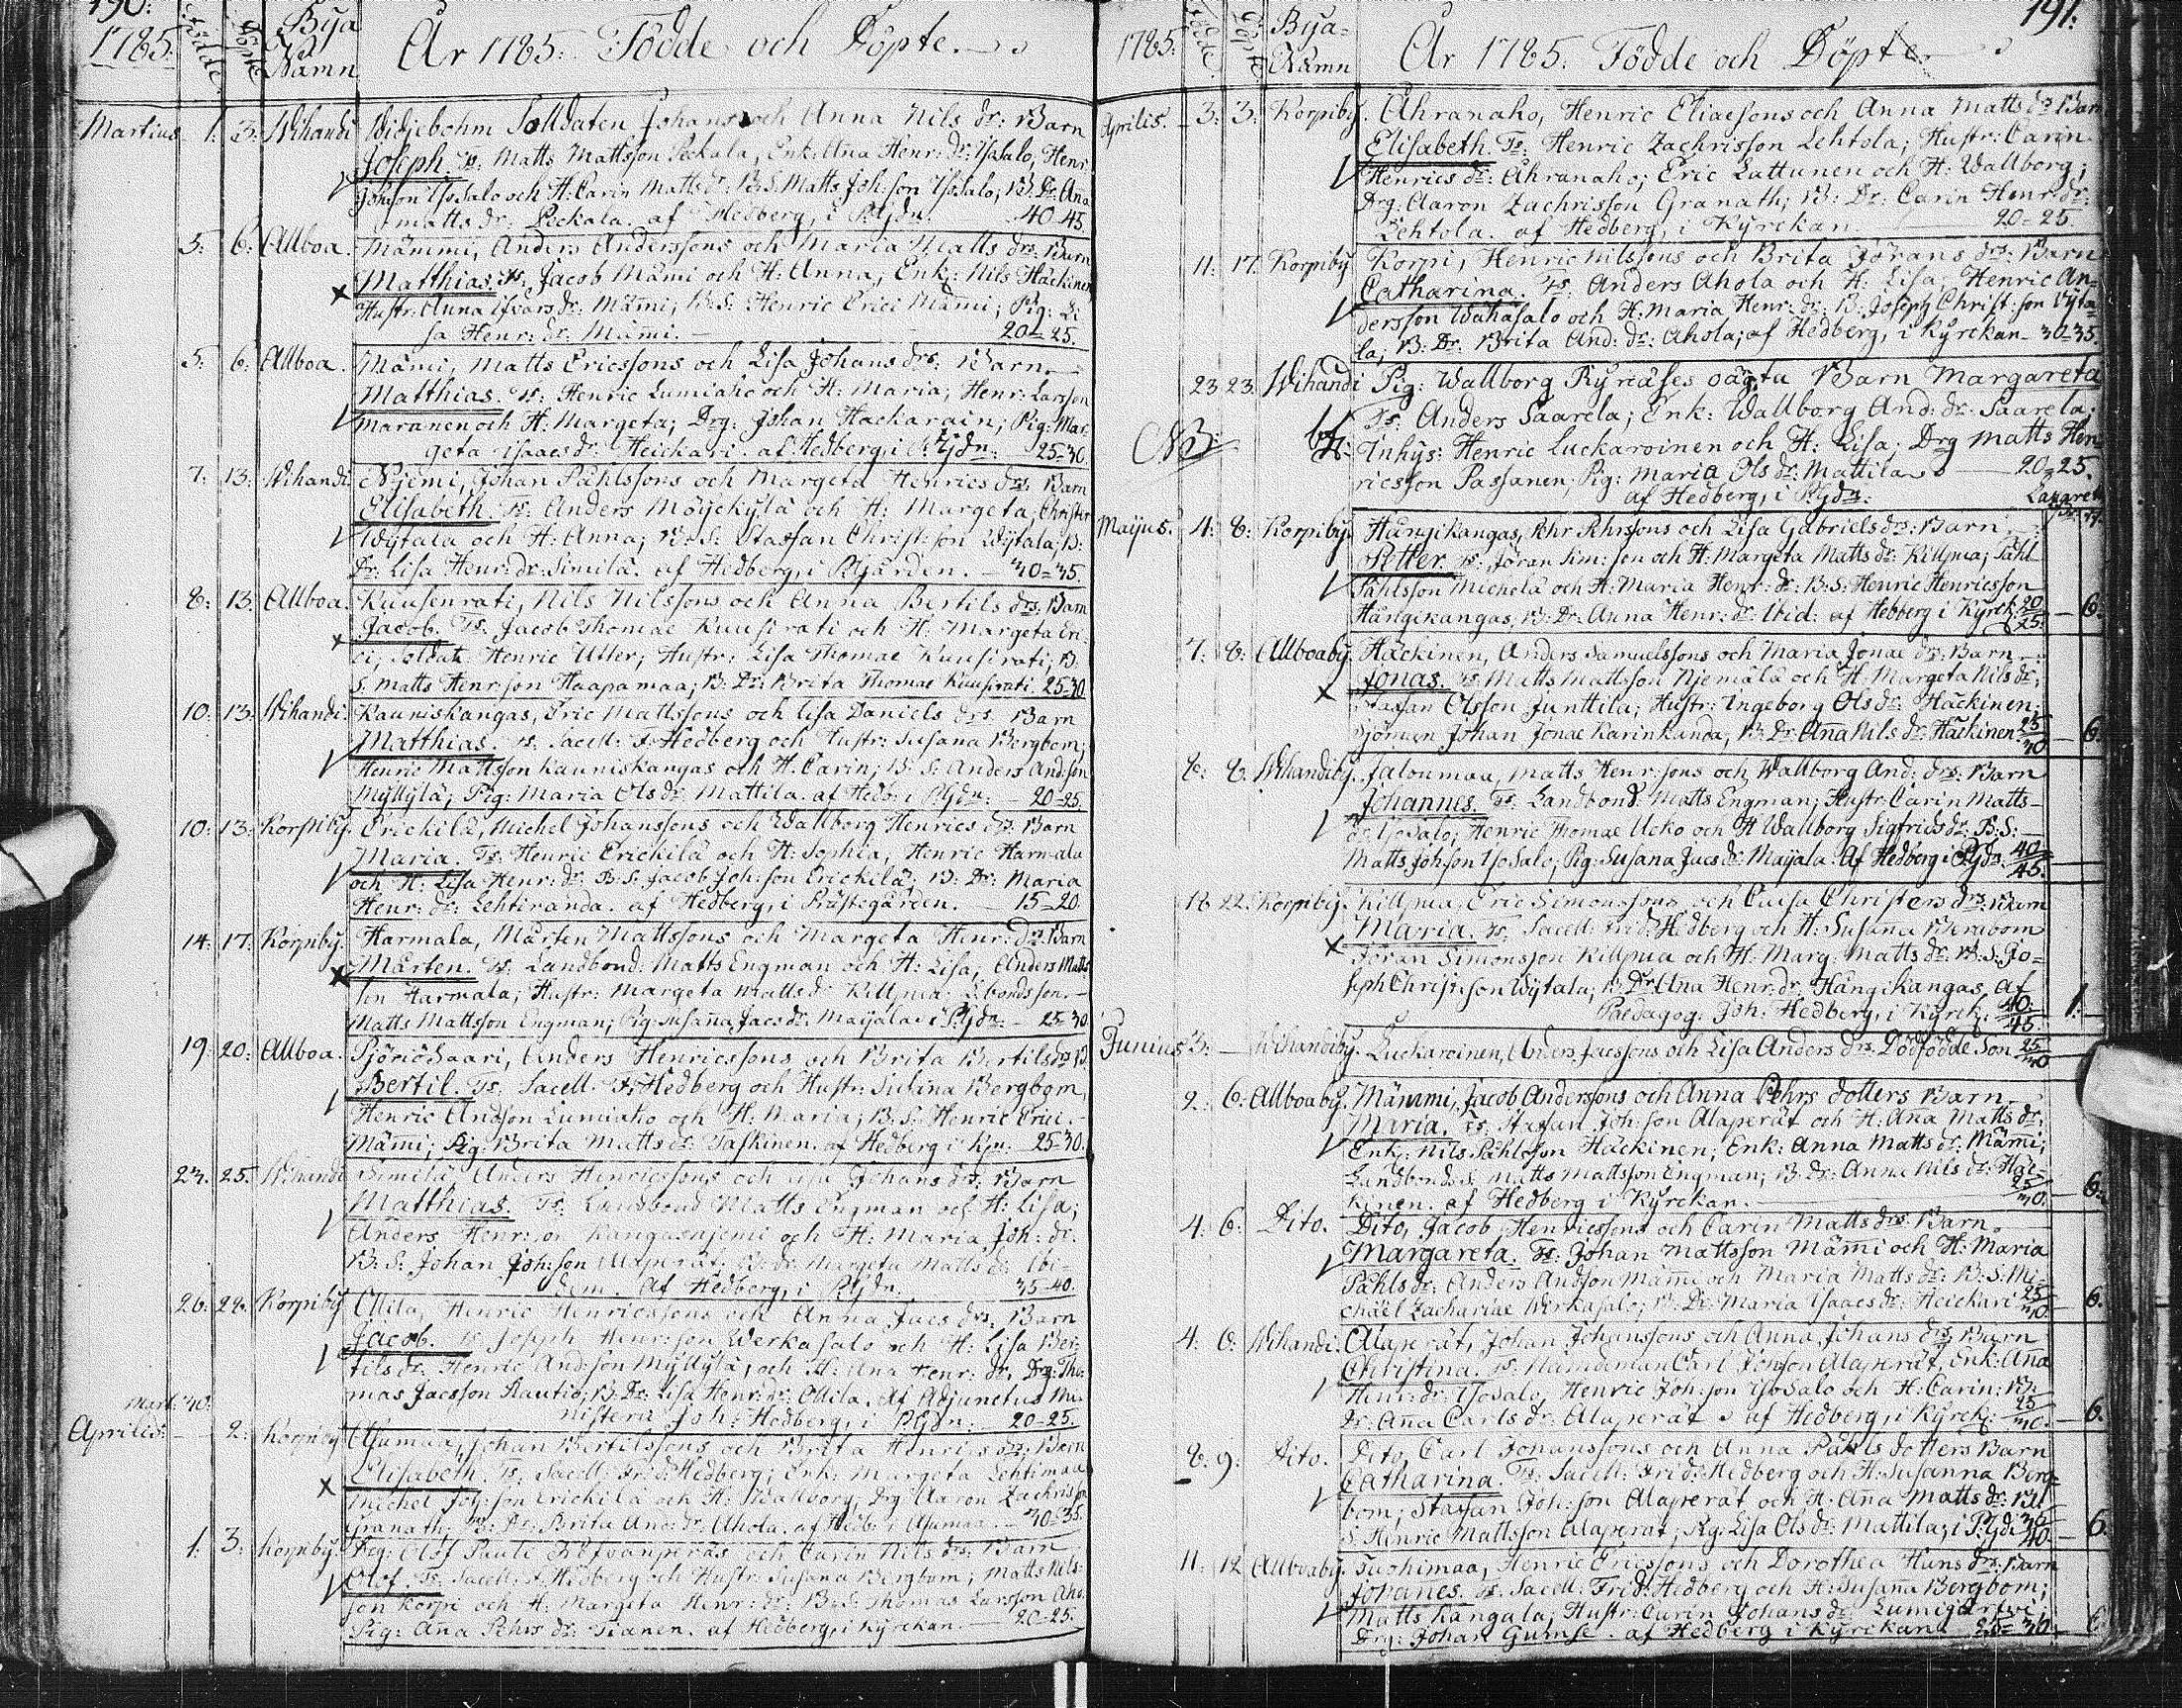 190:
1785. Födde Döpte Bya Namn År 1785: Födde och Döpte.
Martius 1: 3: Wihandi Widjebohm Solldaten Johans och Anna Nils dr: Barn
Joseph. Ts: Matts Mattsson Peckala, Enk: Aña Henr: dr: YsoSalo, Henr:
Johsson YsoSalo och H: Carin Matts dr: B: S: Matts Joh:son YsoSalo; B: Dr: Aña
Matts dr: Peckala. af Hedberg, i Pgdn. 40-45.
5: 6: Allboa. Mämmi, Anders Anderssons och Maria Matts drs: Barn
Matthias. Ts: Jacob Mämi och H: Anna; Enk: Nils Häckinen
Hustr: Anna Ifvars dr: Mämi; B: S: Henric Erici Mämi; Pig: Li-
sa Henr: dr: Mämi. 20-25.
5: 6: Allboa. Mämi, Matts Ericssons och Lisa Johans drs: Barn
Matthias. Ts: Henric Lumiaho och H: Maria; Henr: Larsson
Maranen och H: Margeta; Drg: Johan Hackarain; Pig: Mar-
geta Isaacs dr: Heickari. af Hedberg, i Pgdn: 25-30
7: 13: Wihandi Njemi, Johan Påhlssons och Margeta Henrics drs: Barn
Elisabeth. Ts: Anders Möyckylä och H: Margeta, Christer
Wijtala och H: Anna; B: S: Staffan Christ:son Wijtala; B:
Dr: Lisa Henr: dr: Similä. af Hedberg, i Pgården. 40-45.
8: 13: Allboa. Kuusenrati, Nils Nilssons och Anna Bertils drs: Barn
Jacob. Ts: Jacob Thomae Kuusirati och H: Margeta Eri-
ci; Soldat: Henric Utter; Hustr: Lisa Thomae Kuusirati; B:
S: Matts Henr:son Haapamaa; B: Dr: Brita Thomae Kuusirati. 25-30
10: 13: Wihandi. Kauniskangas, Eric Mattssons och Lisa Daniels drs: Barn
Matthias. Ts: Sacell: F: Hedberg och Hustr: Susana Bergbom;
Henric Mattsson Kauniskangas och H: Carin; B: S: Anders And:son
Myllylä; Pig: Maria Ols dr: Mattila. af Hedb: i Pgdn: 20-25.
10: 13: Korpiby. Erickilä, Michel Johanssons och Wallborg Henrics drs: Barn
Maria. Ts: Henric Erickilä och H: Sophia, Henric Harmala
och H: Lisa Henr: dr: B: S: Jacob Joh:son Erickilä; B: Dr: Maria
Henr: dr: Lehtiranda. af Hedberg, i Prästegården. 15-20
14: 17: Korpiby. Harmala, Mårten Mattssons och Margeta Henr: drs: Barn
Mårten. Ts: Landbond: Matts Engman och H: Lisa, Anders Matts
son Harmala; Hustr: Margeta Matts dr: Killpua: Lbondsson
Matts Mattsson Engman; Pig: Susaña Jacs dr: Maijala. i Pgdn: 25-30
19: 20: Allboa. Pjöriösaari, Anders Henricssons och Brita Bertils drs: B:
Bertil. Ts: Sacell: F: Hedberg och Hustr: Susana Bergbom,
Henric Andson Lumiaho och H: Maria; B: S: Henric Erici
Mämi; Pig: Brita Matts dr: Saskinen. af Hedberg i Kyr: 25-30.
23: 25: Wihandi Similä, Anders Henricssons och Lisa Johans drs: Barn
Matthias. Ts: Landbond Matts Engman och H: Lisa;
Anders Henr:son Kangasnjemi och H: Maria Joh: dr:
B: S: Johan Joh:son Alaperät. B: Dr: Margeta Matts dr: Ibi-
dem. Af Hedberg, i Pgdn. 35-40.
26: 28: Korpiby Ollila, Henric Henricssons och Anna Jacs drs: Barn
Jacob. Ts: Joseph Henr:son Werkasalo och H: Lisa Ber-
tils dr: Henric And:son Myllylä, och H: Aña Henr: dr: Drg: Tho-
mas Jacsson Rautio; B: Dr: Lisa Henr: dr: Ollila. Af Adjunctus Mi-
nisterii Joh: Hedberg, i Pgdn: 20-25.
Mart: 30:
Aprilis 2: Korpiby Asumaa, Johan Bertilssons och Brita Henrics drs: Barn
Elisabeth. Ts: Sacell: Frid: Hedberg; Enk: Margeta Lehtimaa
Michel Joh:son Erickilä och H: Wallborg; Drg: Aaron Zachrisson
Granath; B: Dr: Brita And: dr: Ahola. af Hedb: i Asumaa. 30-35.
1: 3: Korpiby. Reg: Olof Pauli och Carin Nils drs: Barn
Olof. Ts: Sacell: F: Hedberg och Hustr: Susana Bergbom; Matts Nils-
son Korpi och H: Margeta Henr: dr: B: S: Thomas Larsson Aho,
Pig: Aña Pehrs dr: Tianen. af Hedberg, i Kyrckan. 20-25.
191:
1785. Födde Döpte Bya- Namn År 1785: Födde och Döpte
Aprilis. 3: 3: Korpiby. Ahranaho, Henric Eliaesons och Anna Matts drs Barn
Elisabeth. Ts: Henric Zachrisson Lehtola; Hustr: Carin
Henrics dr: Ahranaho; Eric Lattunen och H: Wallborg;
Drg: Aaron Zachrisson Granath; B: Dr: Carin Henr: dr:
Lehtola. af Hedberg, i Kyrckan. 20-25.
11: 17: Korpiby Korpi, Henric Nilssons och Brita Jörans drs: Barn
Catharina. Ts: Anders Ahola och H: Lisa; Henric An-
dersson Wähäsalo och H: Maria Henr: dr: B: Joseph Christ:son Wijta-
la; B: Dr: Brita And: dr: Ahola; af Hedberg, i Kyrckan 30-35
23 23. Wihandi Pig: Wallborg Kyräses oägta Barn Margareta
Ts: Anders Saarela; Enk: Wallborg And: dr: Saarela;
NB: Inhys: Henric Luckaroinen och H: Lisa, Drg Matts Hen
ricsson Passanen; Pig: Maria Ols dr: Mattila 20-25.
af Hedberg, i Pgdn: Lazarets
Majus. 4: 8: Korpiby. Hängikangas, Pehr Pehrsons och Lisa Gabriels drs: Barn
Petter. Ts: Jöran Sim:son och H: Margeta Matts dr: Killpua; Påhl
Påhlsson Michelä och H: Maria Henr: dr: B: S: Henric Henricsson
Hängikangas, B: Dr: Anna Henr: dr: Ibid: af Hedberg i Kyrck: 20/25: 6:
7: 8: Allboaby. Häckinen, Anders Samuelssons och Maria Jonae drs: Barn
Jonas. Ts: Matts Mattsson Njemälä och H: Margeta Nils dr;
Staffan Olsson Junttila; Hustr: Ingeborg Ols dr: Häckinen;
Sjöman Johan Jonae Karinkanda, B: Dr: Aña Nils dr: Häckinen: 25/30 6.
8: 8. Wihandiby. Jaloumaa, Matts Henr:sons och Wallborg And: drs: Barn
Johannes. Ts: Landbond: Matts Engman; Hustr: Carin Matts-
dr: YsoSalo; Henric Thomae Ucko och H: Wallborg Sigfrids dr: B: S:
Matts Joh:son YsoSalo; Pig: Susana Jacs dr: Maijala. Af Hedberg i Pgdn. 40/45.
18 22. Korpiby. Killpua, Eric Simonssons och Caisa Christers drs: Barn
Maria. Ts: Sacell: Frid: Hedberg och H: Susana Bergbom
Jöran Simonsson Killpua och H: Marg: Matts dr: B: S: Jo-
seph Christ:son Wijtala; B: Dr: Aña Henr: dr: Hängikangas, af
Paedagog: Joh: Hedberg, i Kyrck: 40/45 1:
Junius 3: Wihandiby. Luckaroinen, Anders Jacssons och Lisa Anders drs. Dödfödde Son 25/30
2. 6: Allboaby. Mämmi, Jacob Anderssons och Anna Pehrs dotters Barn
Maria. Ts: Staffan Joh:son Alaperät och H: Aña Matts dr:
Enk: Nils Påhlsson Häckinen; Enk: Anna Matts dr: Mämi;
Landbonds: Matts Mattsson Engman; B: Dr: Anna Nils dr: Häc-
kinen. af Hedberg i Kyrckan. 25/30. 6:
4: 6: Dito. Dito, Jacob Henricssons och Carin Matts drs: Barn.
Margareta. Ts: Johan Mattsson Mämi och H: Maria
Påhls dr: Anders Andson Mämi och Maria Matts dr: B: S: Mi-
chäel Zachariae Wirkasalo; B: Dr: Maria Isaacs dr: Heickari 25/30. 6.
4: 6: Wihandi. Alaperät, Johan Johanssons och Anna Johans drs: Barn
Christina. Ts: Nämdeman Carl Johsson Alaperät, Enk: Aña
Henr: dr: YsoSalo, Henric Joh:son YsoSalo och H: Carin: B:
Dr: Aña Carls dr: Alaperät. af Hedberg, i Kyrck: 25/30. 6.
8: 9: Dito. Dito, Carl Johanssons och Anna Påhls dotters Barn
Catharina. Ts: Sacell: Frid: Hedberg och H: Susanna Berg-
bom; Staffan Joh:son Alaperät och H: Aña Matts dr: B:
S: Henric Mattsson Alaperät; Pig: Lisa Ols dr: Mattila; i Pgdn 35/40. 6.
11: 12 Allboaby. Tuohimaa, Henric Ericssons och Dorothea Hans drs: Barn
Johanes. Ts: Sacell: Frid: Hedberg och H: Susaña Bergbom;
Matts Kangala; Hustr: Carin Johans dr: Lumijärfvi
Drg: Johan Gumse. af Hedberg i Kyrckan 25-30. 6.